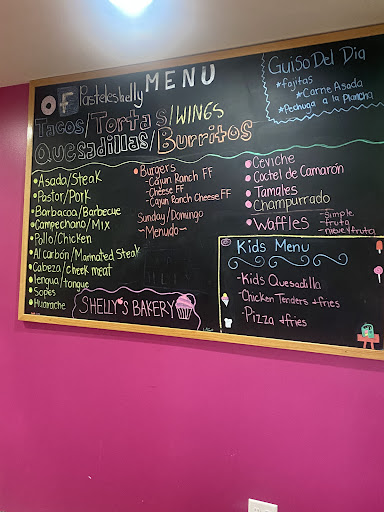 OF Pasteleshelly MENU
Tacos/Tortas/WINGS
Quesadillas/Burritos
Guiso Del Dia
*fajitas
*Carne Asada
*Pechuga a la plancha
•Asado/Steak
•Pastor/Pork
•Barbacoa/Barbecue
•Campechano/Mix
•Pollo/Chicken
•Al carbón/Marinated Steak
•Cabeza/cheek meat
•Lengua/tongue
•Sopes
•Huarache
•Burgers
-Cajun Ranch FF
-Cheese FF
-Cajun Ranch Cheese FF
Sunday/Domingo
~Menudo~
SHELLY'S BAKERY
•Ceviche
•Coctel de Camarón
•Tamales
•Champurrado
•Waffles
-Simple
-fruta
-nieve y fruta
Kids Menu
-Kids Quesadilla
-Chicken Tenders +fries
-Pizza +fries